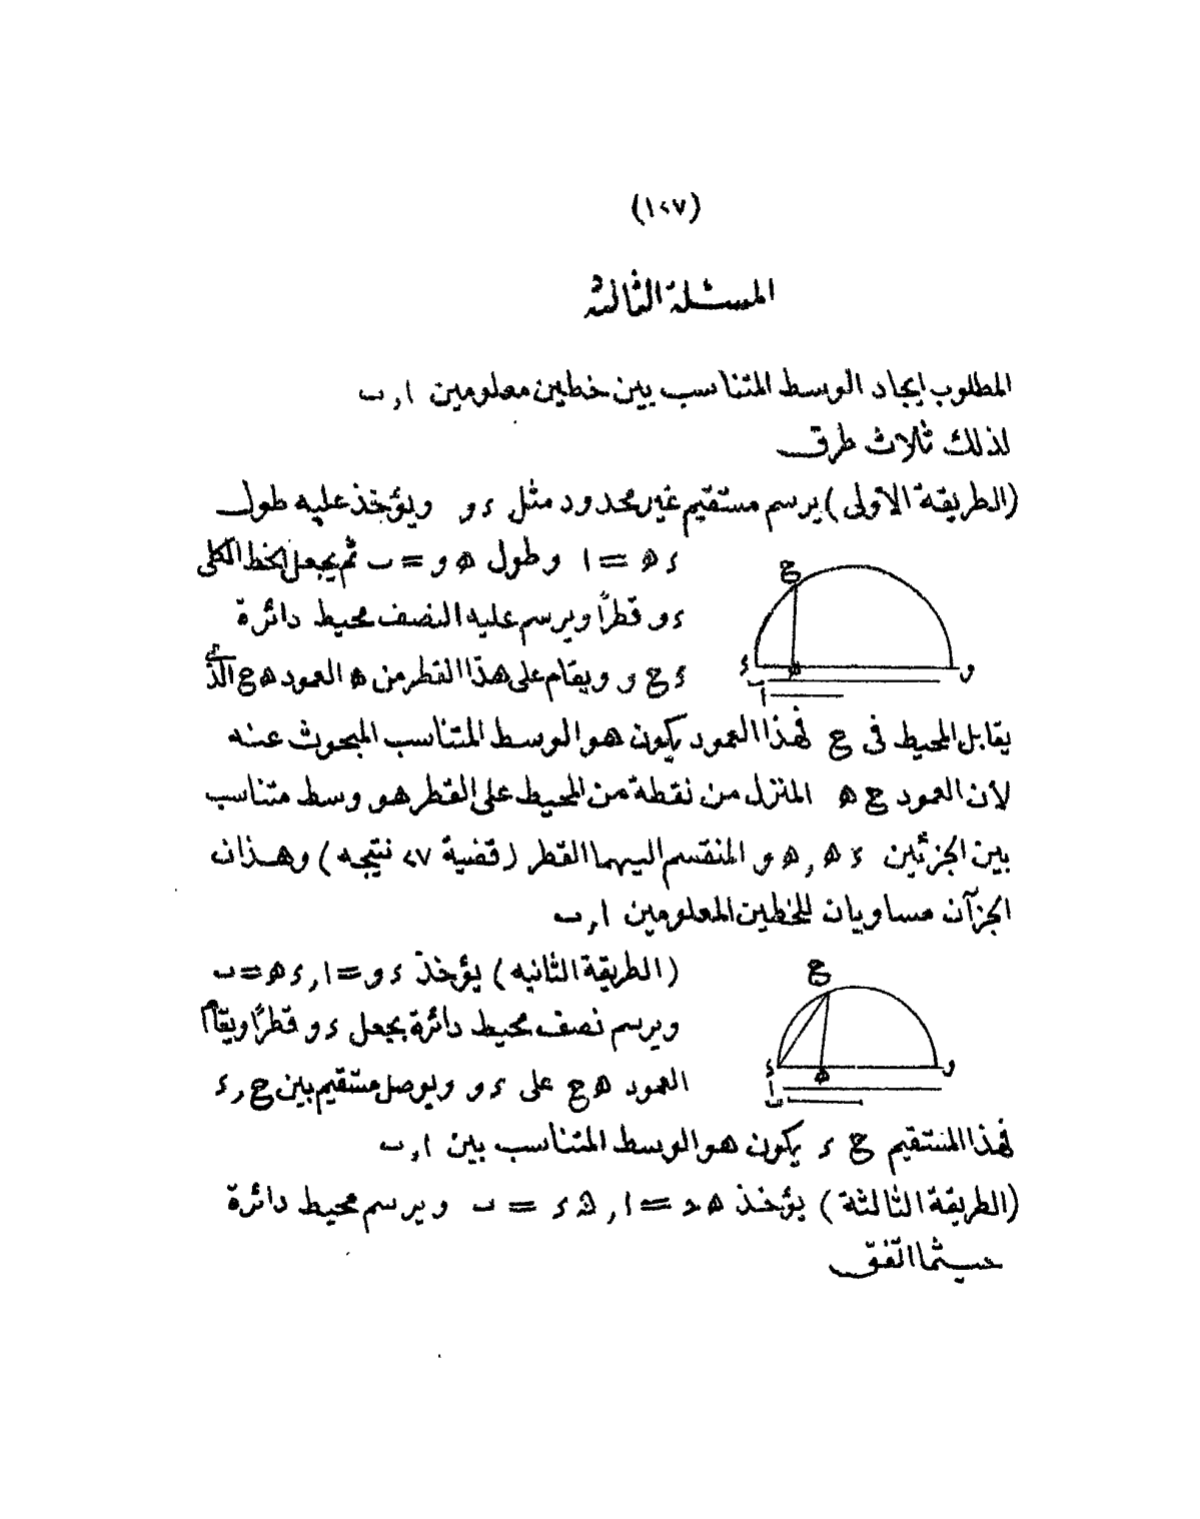 (١٢٧)
المسئلة الثالثة
المطلوب ايجاد الوسط المتناسب بين خطين معلومين ا , ب
لذلك ثلاث طرق
(الطريقة الاولى) يرسم مستقيم غير محدود مثل ء و ويؤخذ عليه طول
ء ه = ا وطول ه و = ب ثم يجعل الخط الكلى
ء و قطرًا ويرسم عليه النصف محيط دائرة
ء ح و ويقام على هذا القطر من ه العمود ه ح الذى
ح
ء ه و
ب
ا
يقابل المحيط فى ح فهذا العمود يكون هو الوسط المتناسب المبحوث عنه
لأن العمود ح ه المنزل من نقطة من المحيط على القطر هو وسط متناسب
بين الجزئين ء ه , ه و المنقسم اليهما القطر (قضية ٢٧ نتيجه) وهذان
الجزآن مساويان للخطين المعلومين ا , ب
(الطريقة الثانيه) يؤخذ ء و = ا , ء ه = ب
ويرسم نصف محيط دائرة بجعل ء و قطرًا ويقام
العمود ه ح على ء و ويوصل مستقيم بين ح , ء
ح
ء ه و
ا
ب
فهذا المستقيم ح ء يكون هو الوسط المتناسب بين ا , ب
(الطريقة الثالثة) يؤخذ ه د = ا , ه ء = ب ويرسم محيط دائرة
حيثما اتفق